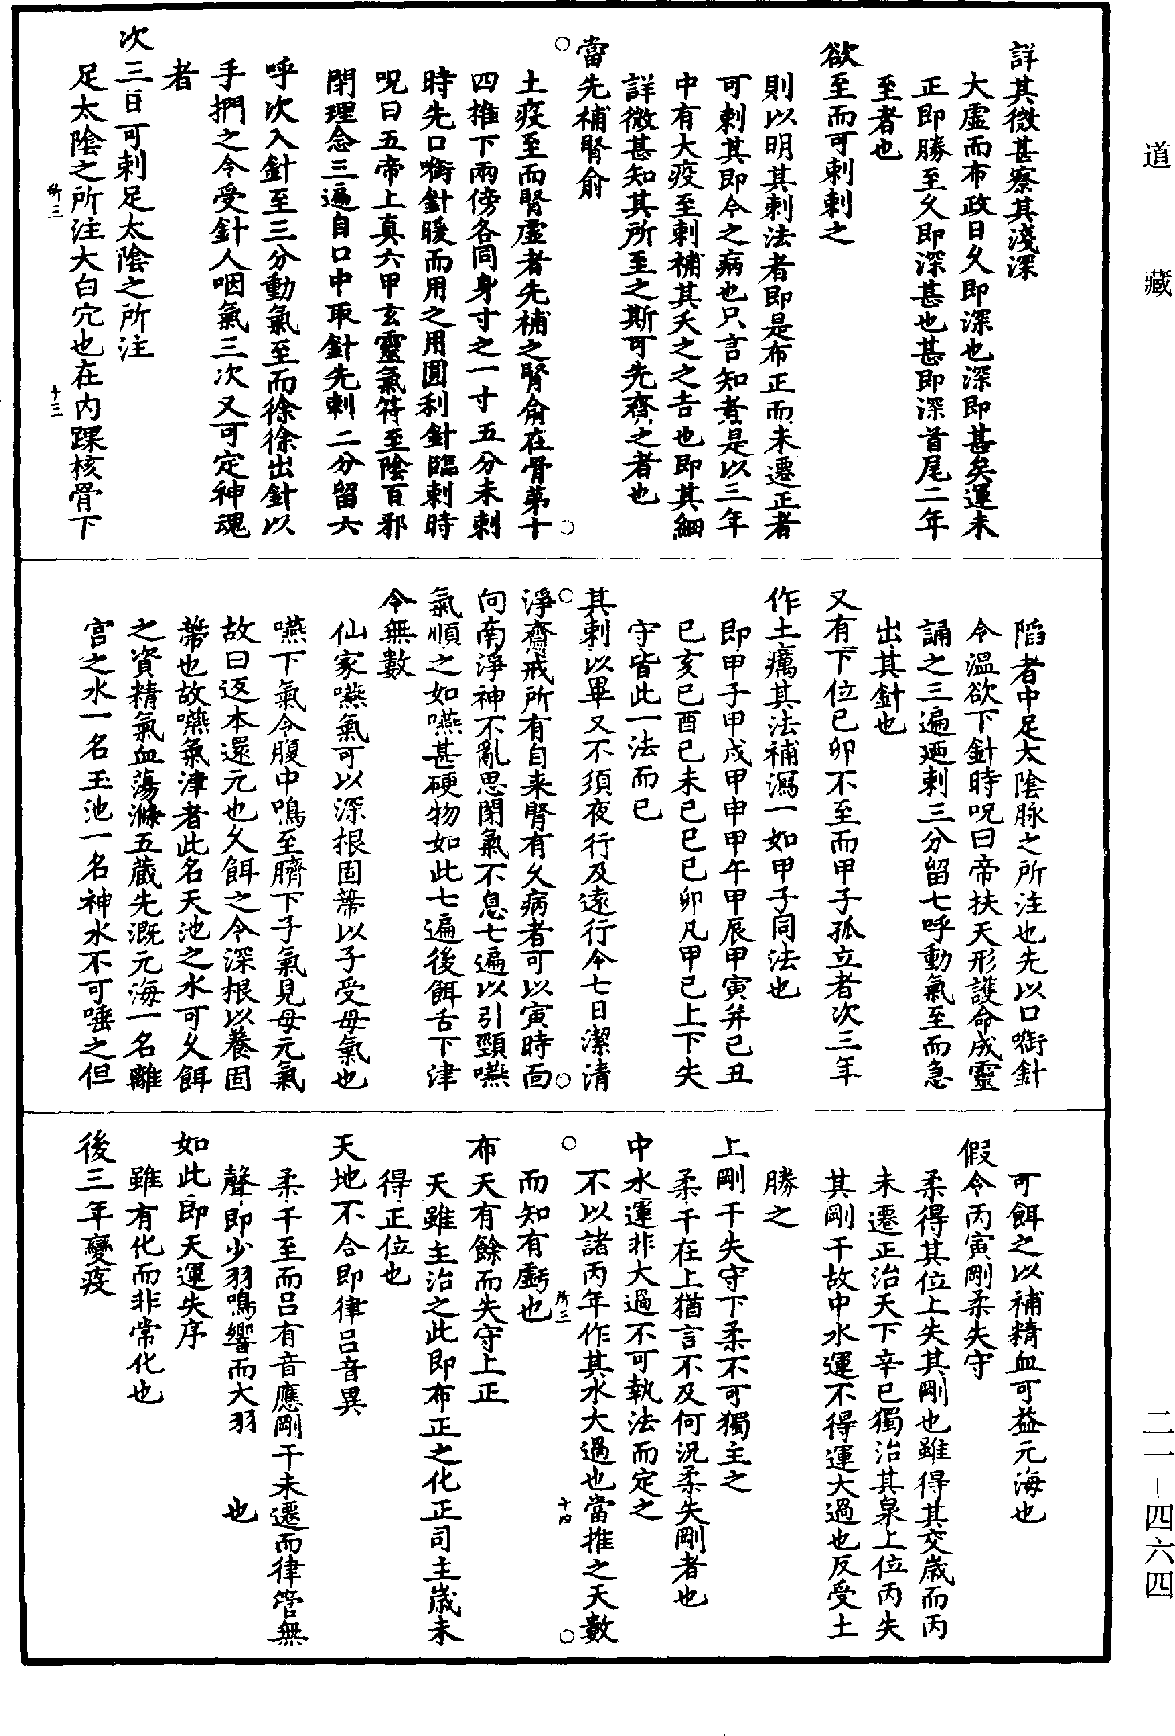 道藏
詳其微甚察其淺深
大虛而布政日久即深也深即甚矣運未
正即勝至久即深甚也甚即深首尾二年
至者也
欲至而可刺刺之
則以明其刺法者即是布正而未遷正者
可刺其即令之病也只言知者是以三年
中有大疫至刺補其天之之吉也即其細
詳微甚知其所至之斯可先齊之者也
當先補腎俞
土疫至而腎虛者先補之腎俞在骨第十
四椎下兩傍各同身寸之一寸五分未刺
時先口㗸針暖而用之用圓利針臨刺時
呪曰五帝上真六甲玄靈氣符至陰百邪
閉理念三遍自口中取針先刺二分留六
呼次入針至三分動氣至而徐徐出針以
手捫之令受針人咽氣三次又可定神魂
者
次三日可刺足太陰之所注
足太陰之所注大白穴也在內踝核骨下
所三
十三
陷者中足太陰脉之所注也先以口㗸針
令溫欲下針時呪曰帝扶天形護命成靈
誦之三遍廼刺三分留七呼動氣至而急
出其針也
又有下位已卯不至而甲子孤立者次三年
作土癘其法補瀉一如甲子同法也
即甲子甲戌甲申甲午甲辰甲寅并己丑
已亥已酉已未已巳已卯凡甲已上下失
守皆此一法而已
其刺以畢又不須夜行及遠行令七日潔清
淨齋戒所有自来腎有久病者可以寅時面
向南淨神不亂思閉氣不息七遍以引頸嚥
氣順之如嚥甚硬物如此七遍後餌舌下津
令無數
仙家嚥氣可以深根固蒂以子受母氣也
嚥下氣令腹中鳴至臍下子氣見母元氣
故曰返本還元也久餌之令深根以養固
蒂也故嚥氣津者此名天池之水可久餌
之資精氣血蕩滌五藏先溉元海一名離
宫之水一名玉池一名神水不可唾之但
可餌之以補精血可益元海也
假令丙寅剛柔失守
柔得其位上失其剛也雖得其交歲而丙
未遷正治天下辛巳獨治其泉上位丙失
其剛干故中水運不得運大過也反受土
勝之
上剛干失守下柔不可獨主之
柔干在上猶言不及何況柔失剛者也
中水運非大過不可執法而定之
不以諸丙年作其水大過也當推之天數
而知有虧也
所三
十四
布天有餘而失守上正
天雖主治之此即布正之化正司主歲未
得正位也
天地不合即律呂音異
柔干至而呂有音應剛干未遷而律管無
聲即少羽鳴響而大羽 也
如此即天運失序
雖有化而非常化也
後三年變疫
二一—四六四